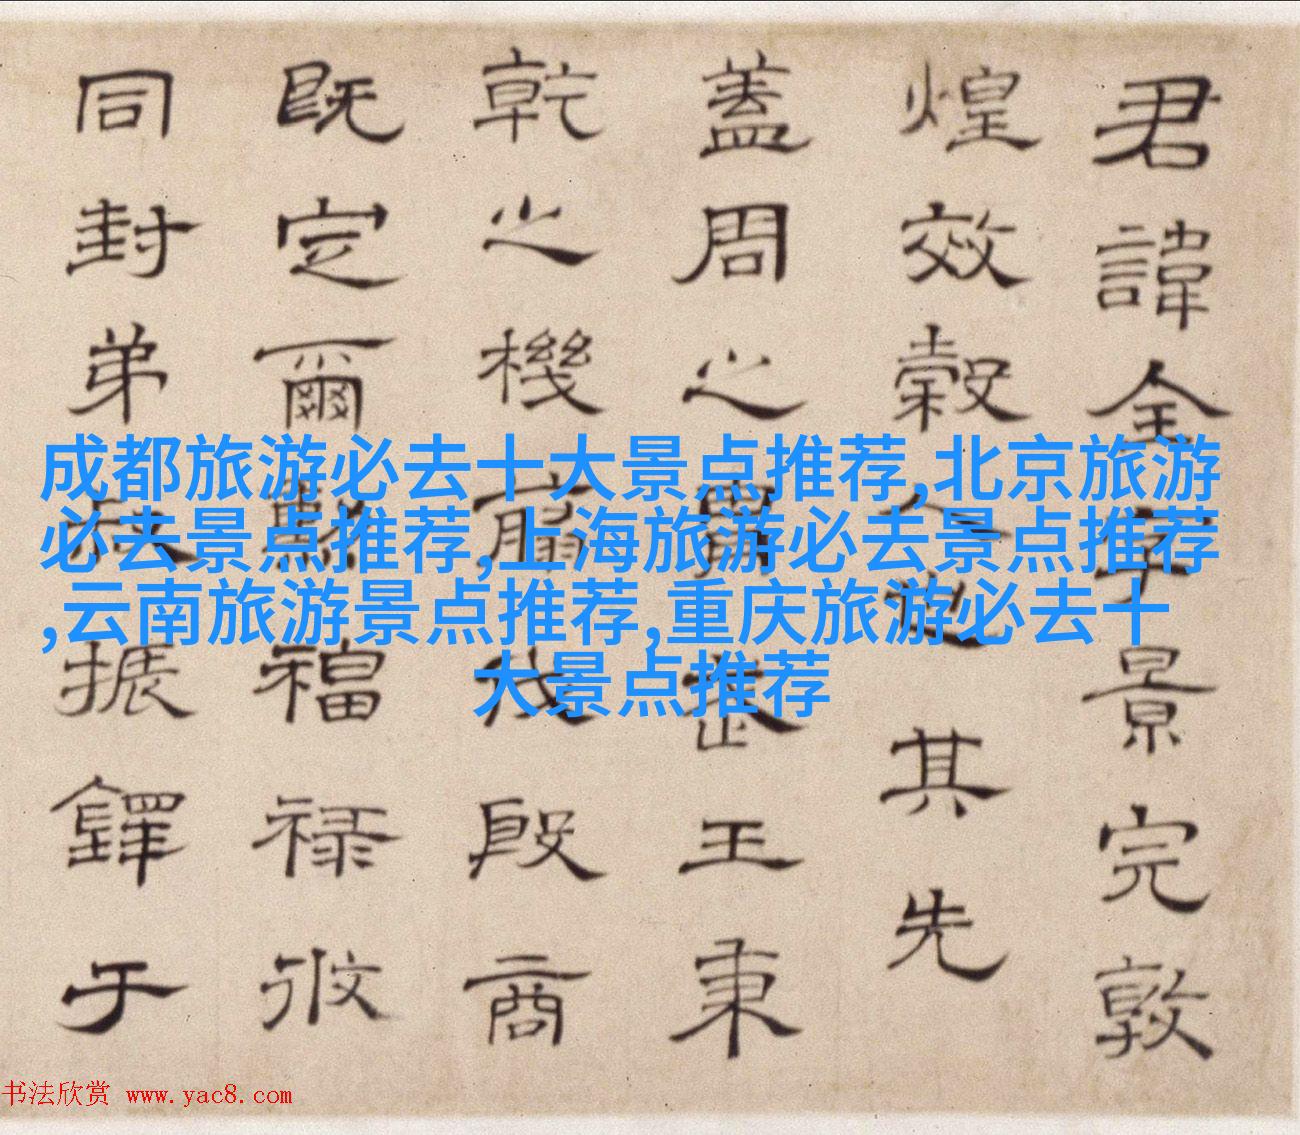 君諱全字景完敦
煌效穀人也其先
蓋周之胄武王秉
乾之機翦伐殷商
既定爾勲福禄攸
同封弟叔振鐸于
成都旅游必去十大景点推荐,北京旅游
必去景点推荐,上海旅游必去景点推荐
,云南旅游景点推荐,重庆旅游必去十
大景点推荐
书法欣赏 www.yac8.com